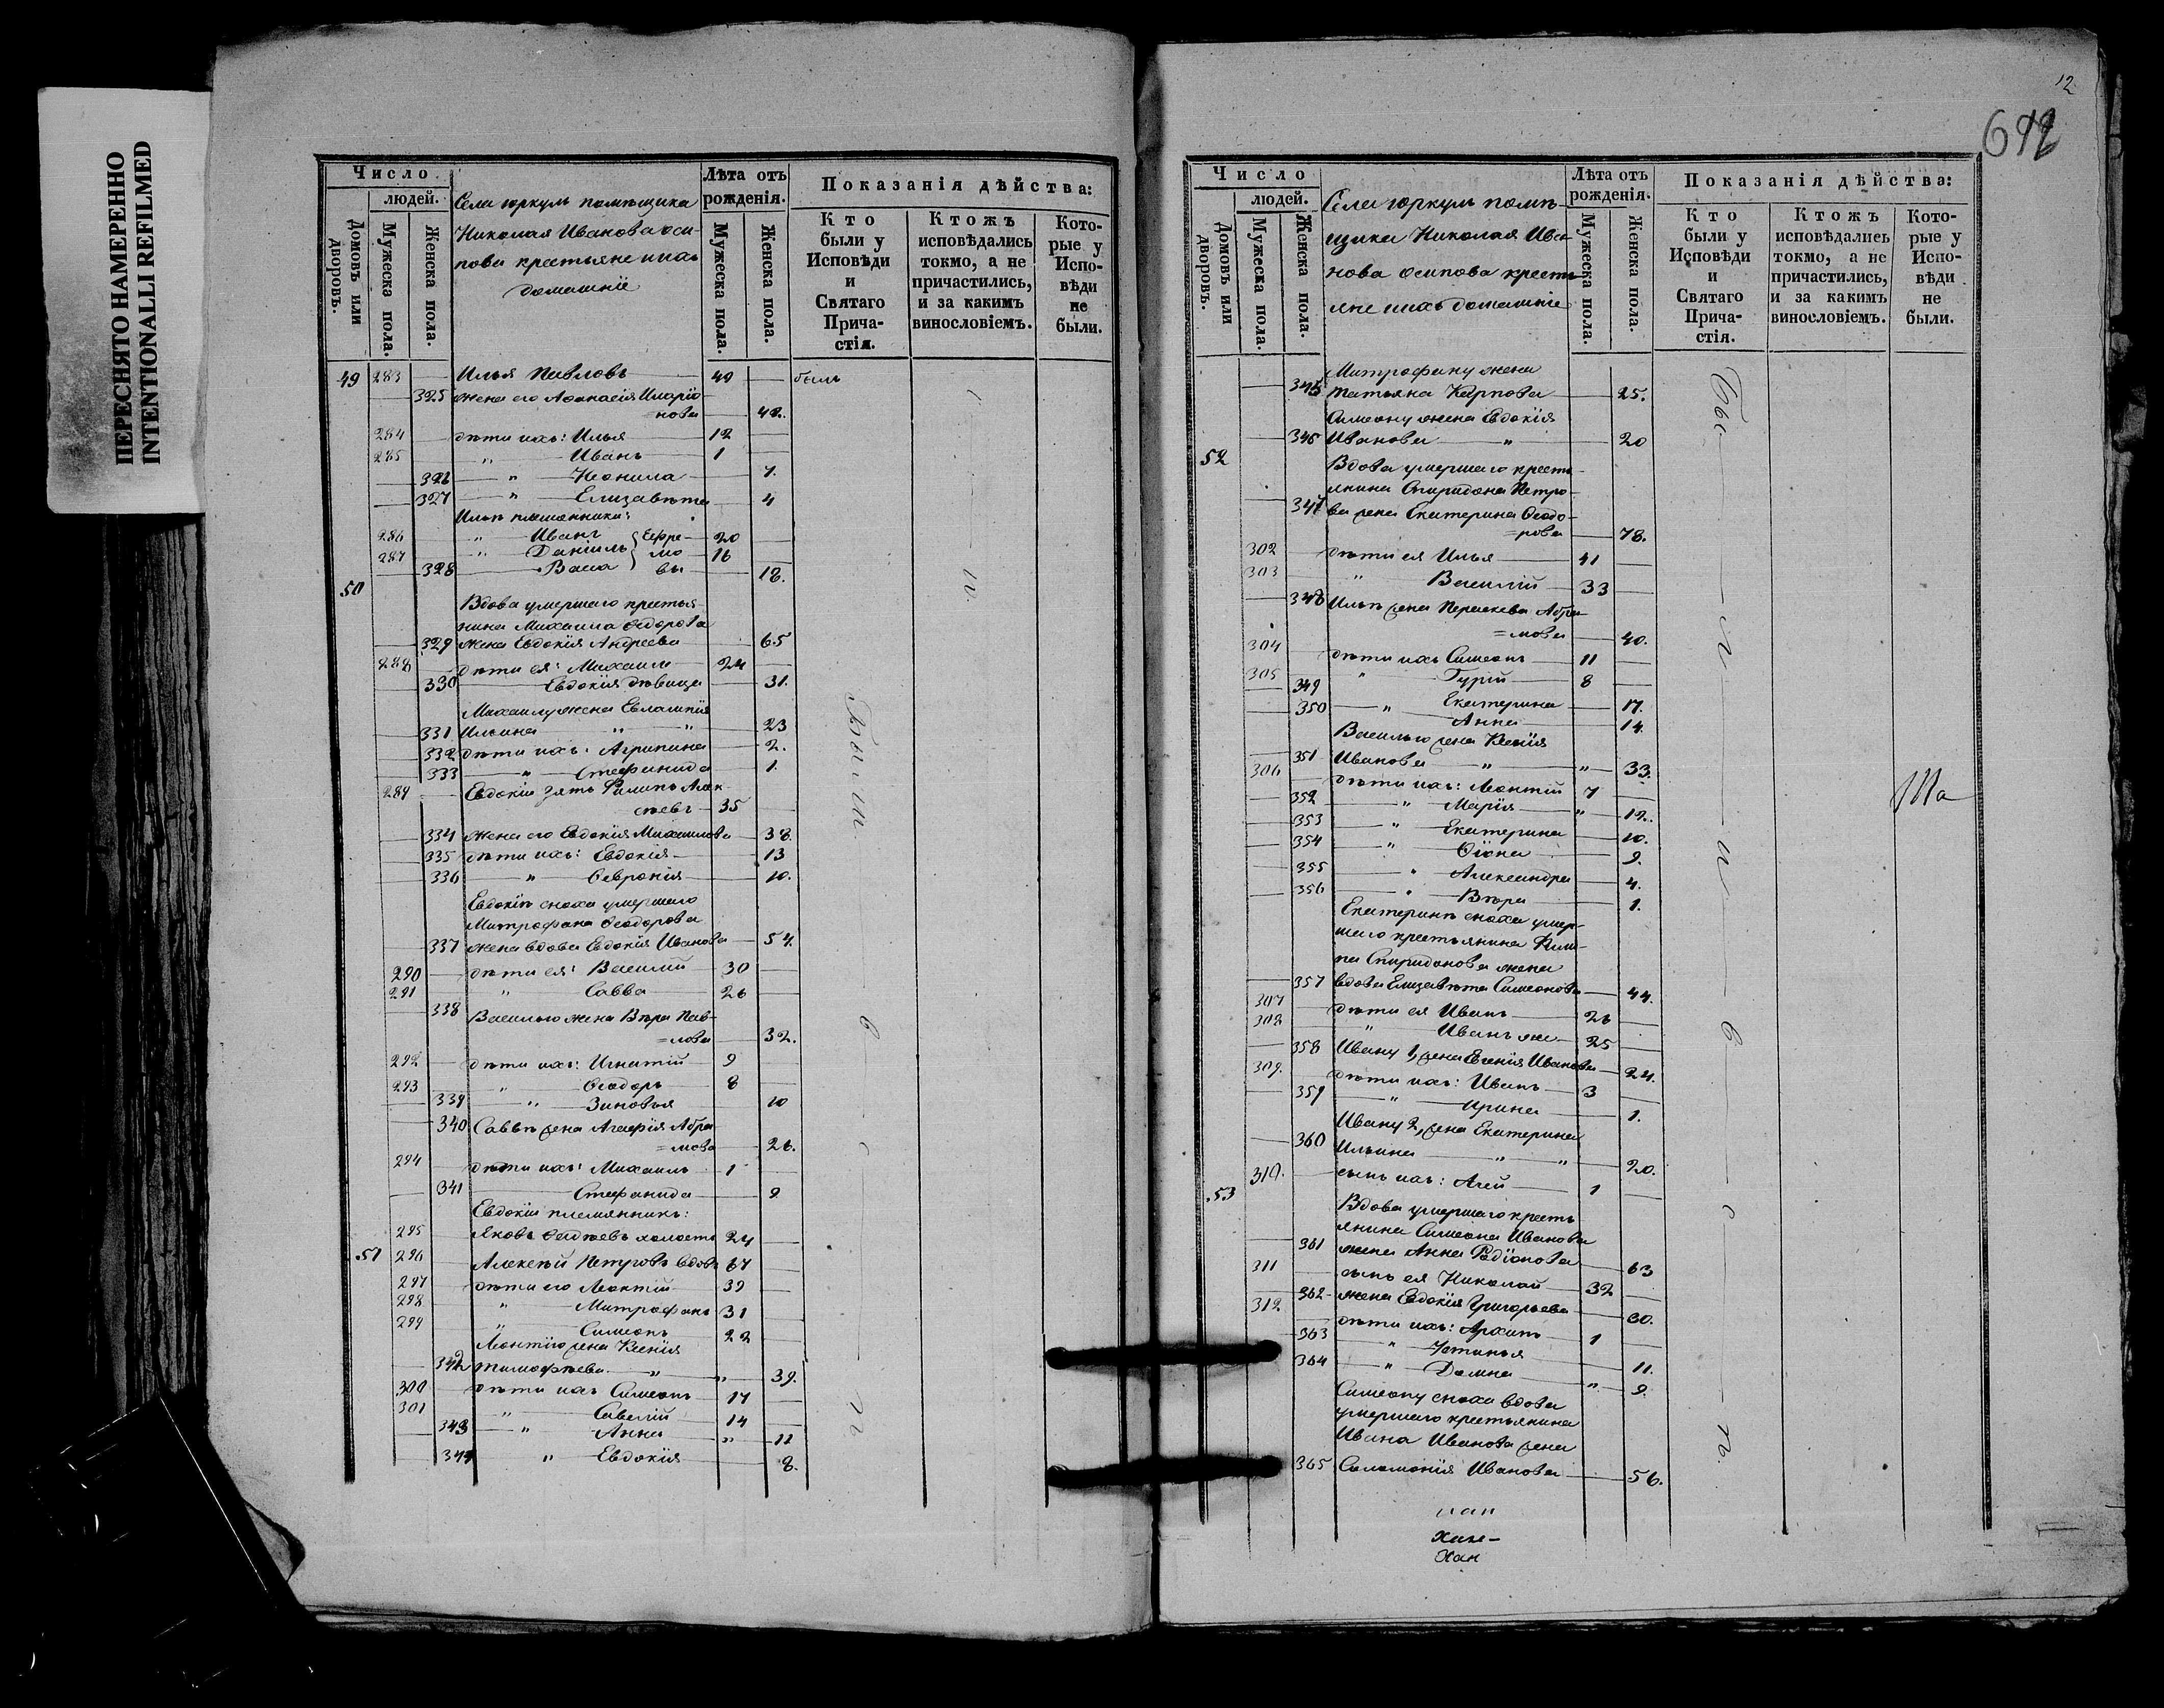 ПЕРЕСНЯТО НАМЕРЕННО
INTENTIONALLI REFILMED
Число
людей.
Домовъ или дворовъ.
Мужеска пола.
Женска пола.
Села юркуль помѣщика
Николая Иванова оси-
пова крестьяне и ихъ
домашніе
Лѣта отъ рожденія.
Мужеска пола.
Женска пола.
Показанія дѣйства:
Кто были у Исповѣди и Святаго Прича-стія.
Ктожъ исповѣдались токмо, а не причастились, и за какимъ винословіемъ.
Кото-рые у Испо-вѣди не были.
49 283 Илья Павловъ 40 былъ
325 жена его Афанасія Иларіо
=нова 42.
284 дѣти ихъ: Илья 12
285 " Иванъ 1
326 " Неонила 7.
327 " Елизавѣта 4
Ильѣ племянники:
286 " Иванъ Ефре- 20
287 " Даніилъ мо 16
328 Васса вы 18.
50
Вдова умершаго крестья-
нина Михаила Ѳедорова
329 жена Евдокія Андреева 65
288 дѣти ея: Михаилъ 24
330 Евдокія дѣвица 31.
Михаилу жена Евлампія
331 Ильина " " 23
332 дѣти ихъ: Агрипина 2.
333 " Стефанида 1.
289 Евдокіи зять Филипъ Алек-
сѣевъ 35
334 жена его Евдокія Михаилова 38.
335 дѣти ихъ: Евдокія 13
336 " Февронія 10.
Евдокіѣ сноха умершаго
Митрофана Ѳеодорова
337 жена вдова Евдокія Иванова 54.
290 дѣти ея: Василій 30
291 " Савва 26
338 Василью жена Вѣра Пав-
=лова 32.
292 дѣти ихъ: Игнатій 9
293 " Ѳеодоръ 8
339 " Зиновья 10
340 Саввѣ жена Агафія Абра
=мова 26.
294 дѣти ихъ: Михаилъ 1
341 Стефанида 9
Евдокіи племянникъ:
295 Яковъ холостъ 24
51 296 Алексѣй Петровъ вдовъ 67
297 дѣти его Леонтій 39
298 " Митрофанъ 31
299 " Симеонъ 22
Леонтію жена Ксенія
342 Тимофѣева " " 39.
300 дѣти ихъ Симеонъ 17
301 " Савелій 14
343 " Анна " 11
344 " Евдокія 8.
12
Число
людей.
Домовъ или дворовъ.
Мужеска пола.
Женска пола.
Села юркуль помѣ-
щика Николая Ива-
нова осипова кресть-
яне и ихъ домашніе
Лѣта отъ рожденія.
Мужеска пола.
Женска пола.
Показанія дѣйства:
Кто были у Исповѣди и Святаго Прича-стія.
Ктожъ исповѣдались токмо, а не причастились, и за какимъ винословіемъ.
Кото-рые у Испо-вѣди не были.
Митрофану жена
345 Татьяна Карпова 25.
Симеону жена Евдокія
346 Иванова " 20
52
Вдова умершаго кресть-
янина Спиридона Петро-
347 ва жена Екатерина Ѳеодо-
=рова 78.
302 дѣти ея Илья 41
303 " Василій 33
348 Ильѣ жена Параскева Абра
=мова 40.
304 дѣти ихъ Симеонъ 11
305 " Гурій 8
349 " Екатерина 17.
350 " Анна 14.
Василью жена Ксенія
351 Иванова " " 33.
306 дѣти ихъ: Леонтій 7
352 " Марія " 12.
353 " Екатерина 10.
354 " Ѳіона 9.
355 " Александра 4.
356 Вѣра 1.
Екатеринѣ сноха умер-
шаго крестьянина Фили-
па Спиридонова жена
357 вдова Елизавѣта Симеонова 44.
307 дѣти ея Иванъ 26
308 " Иванъ же 25
358 Ивану 1, жена Евгенія Иванова 24.
309. дѣти ихъ: Иванъ 3
359 " Ирина 1.
Ивану 2, жена Екатерина
360 Ильина " " 20.
310. сынъ ихъ: Агей 1
53
Вдова умершаго кресть
янина Симеона Иванова
361 жена Анна Родіонова 63
311 сынъ ея Николай 32
362 жена Евдокія Григорьева 30.
312 дѣти ихъ: Архипъ 1
363 " Устинья 11.
364 " Домна " 9.
Симеону сноха вдова
умершаго крестьянина
Ивана Иванова жена
365 Соломонія Иванова 56.